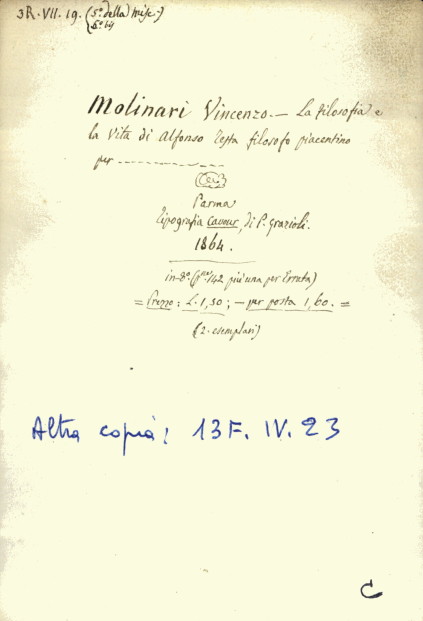 3R. VII. 19. (5º. della Misc.)
6º. 64
Molinari Vincenzo. — La filosofia e
la Vita di Alfonso Testa filosofo piacentino
per
Parma
Tipografia Cavour, di P. Grazioli.
1864.
in-8º. (pne. 142 più una per Errata)
= Prezzo: L. 1,50; — per posta 1,60. =
(2. esemplari)
Altra copia: 13F. IV. 23
C